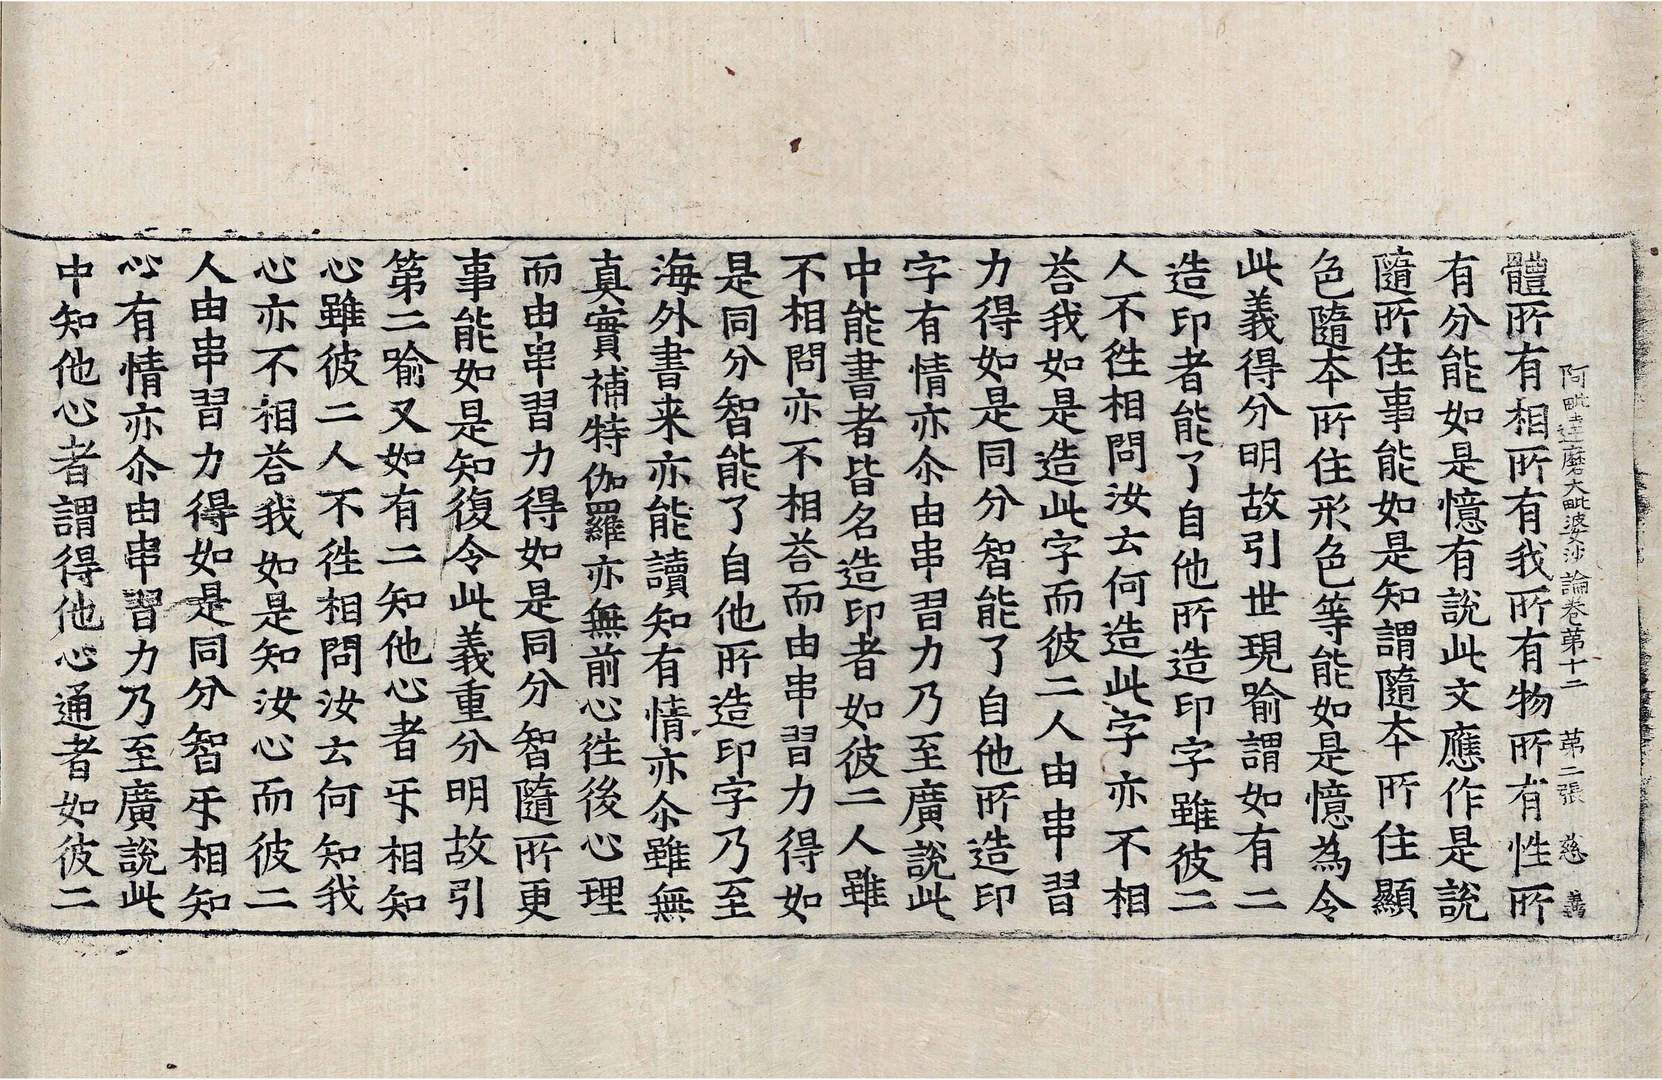 阿毗達磨大毗婆沙論卷第十二 第二張 慈
體所有相所有我所有物所有性所
有分能如是憶有說此文應作是說
隨所住事能如是知謂隨本所住顯
色隨本所住形色等能如是憶為令
此義得分明故引世現喻謂如有二
造印者能了自他所造印字雖彼二
人不徃相問汝云何造此字亦不相
荅我如是造此字而彼二人由串習
力得如是同分智能了自他所造印
字有情亦尒由串習力乃至廣說此
中能書者皆名造印者如彼二人雖
不相問亦不相荅而由串習力得如
是同分智能了自他所造印字乃至
海外書来亦能讀知有情亦尒雖無
真實補特伽羅亦無前心徃後心理
而由串習力得如是同分智隨所更
事能如是知復令此義重分明故引
第二喻又如有二知他心者㸦相知
心雖彼二人不徃相問汝云何知我
心亦不相荅我如是知汝心而彼二
人由串習力得如是同分智㸦相知
心有情亦尒由串習力乃至廣說此
中知他心者謂得他心通者如彼二